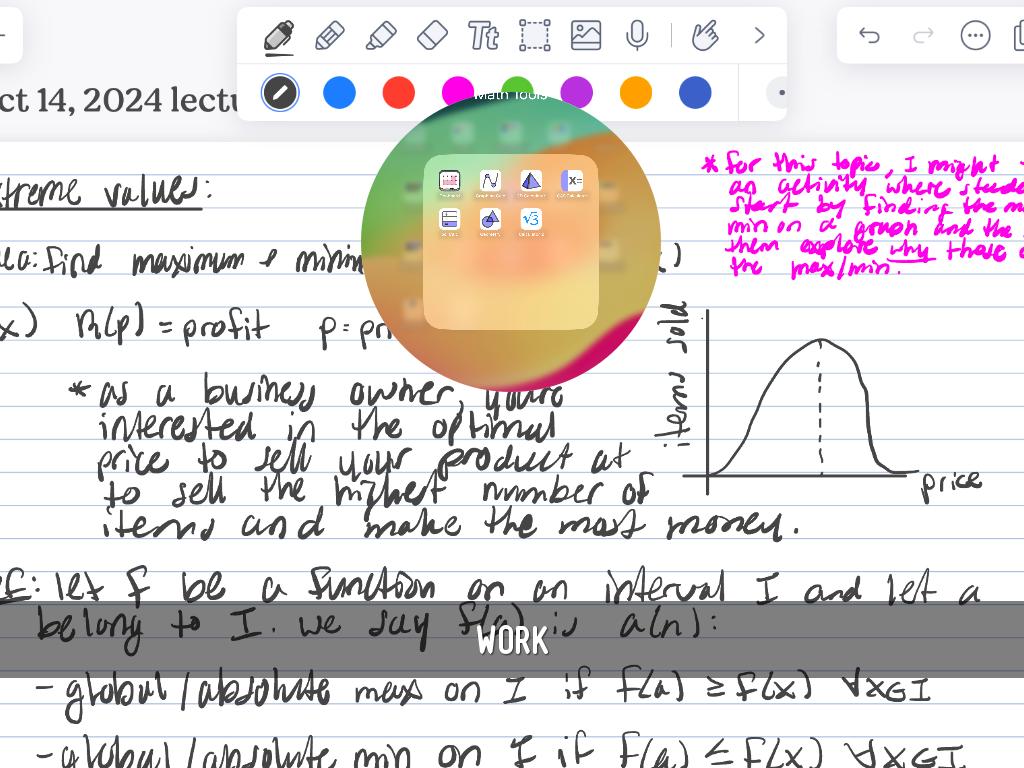 Tt
ct 14, 2024 lectu
Math Tools
xtreme values:
* for this topic, I might
an activity where stude
start by finding the m
min on a graph and the
them explore why those
the max/min.
ea: find maximum & minim
x) R(p) = profit p = pri
* as a business owner, youre
interested in the optimal
price to sell your product at
to sell the highest number of
items and make the most money.
items sold
price
EF: let f be a function on an interval I and let a
belong to I. we say f(a) is a(n):
WORK
- global/absolute max on I if f(a) ≥ f(x) ∀x∈I
- global/absolute min on I if f(a) ≤ f(x) ∀x∈I